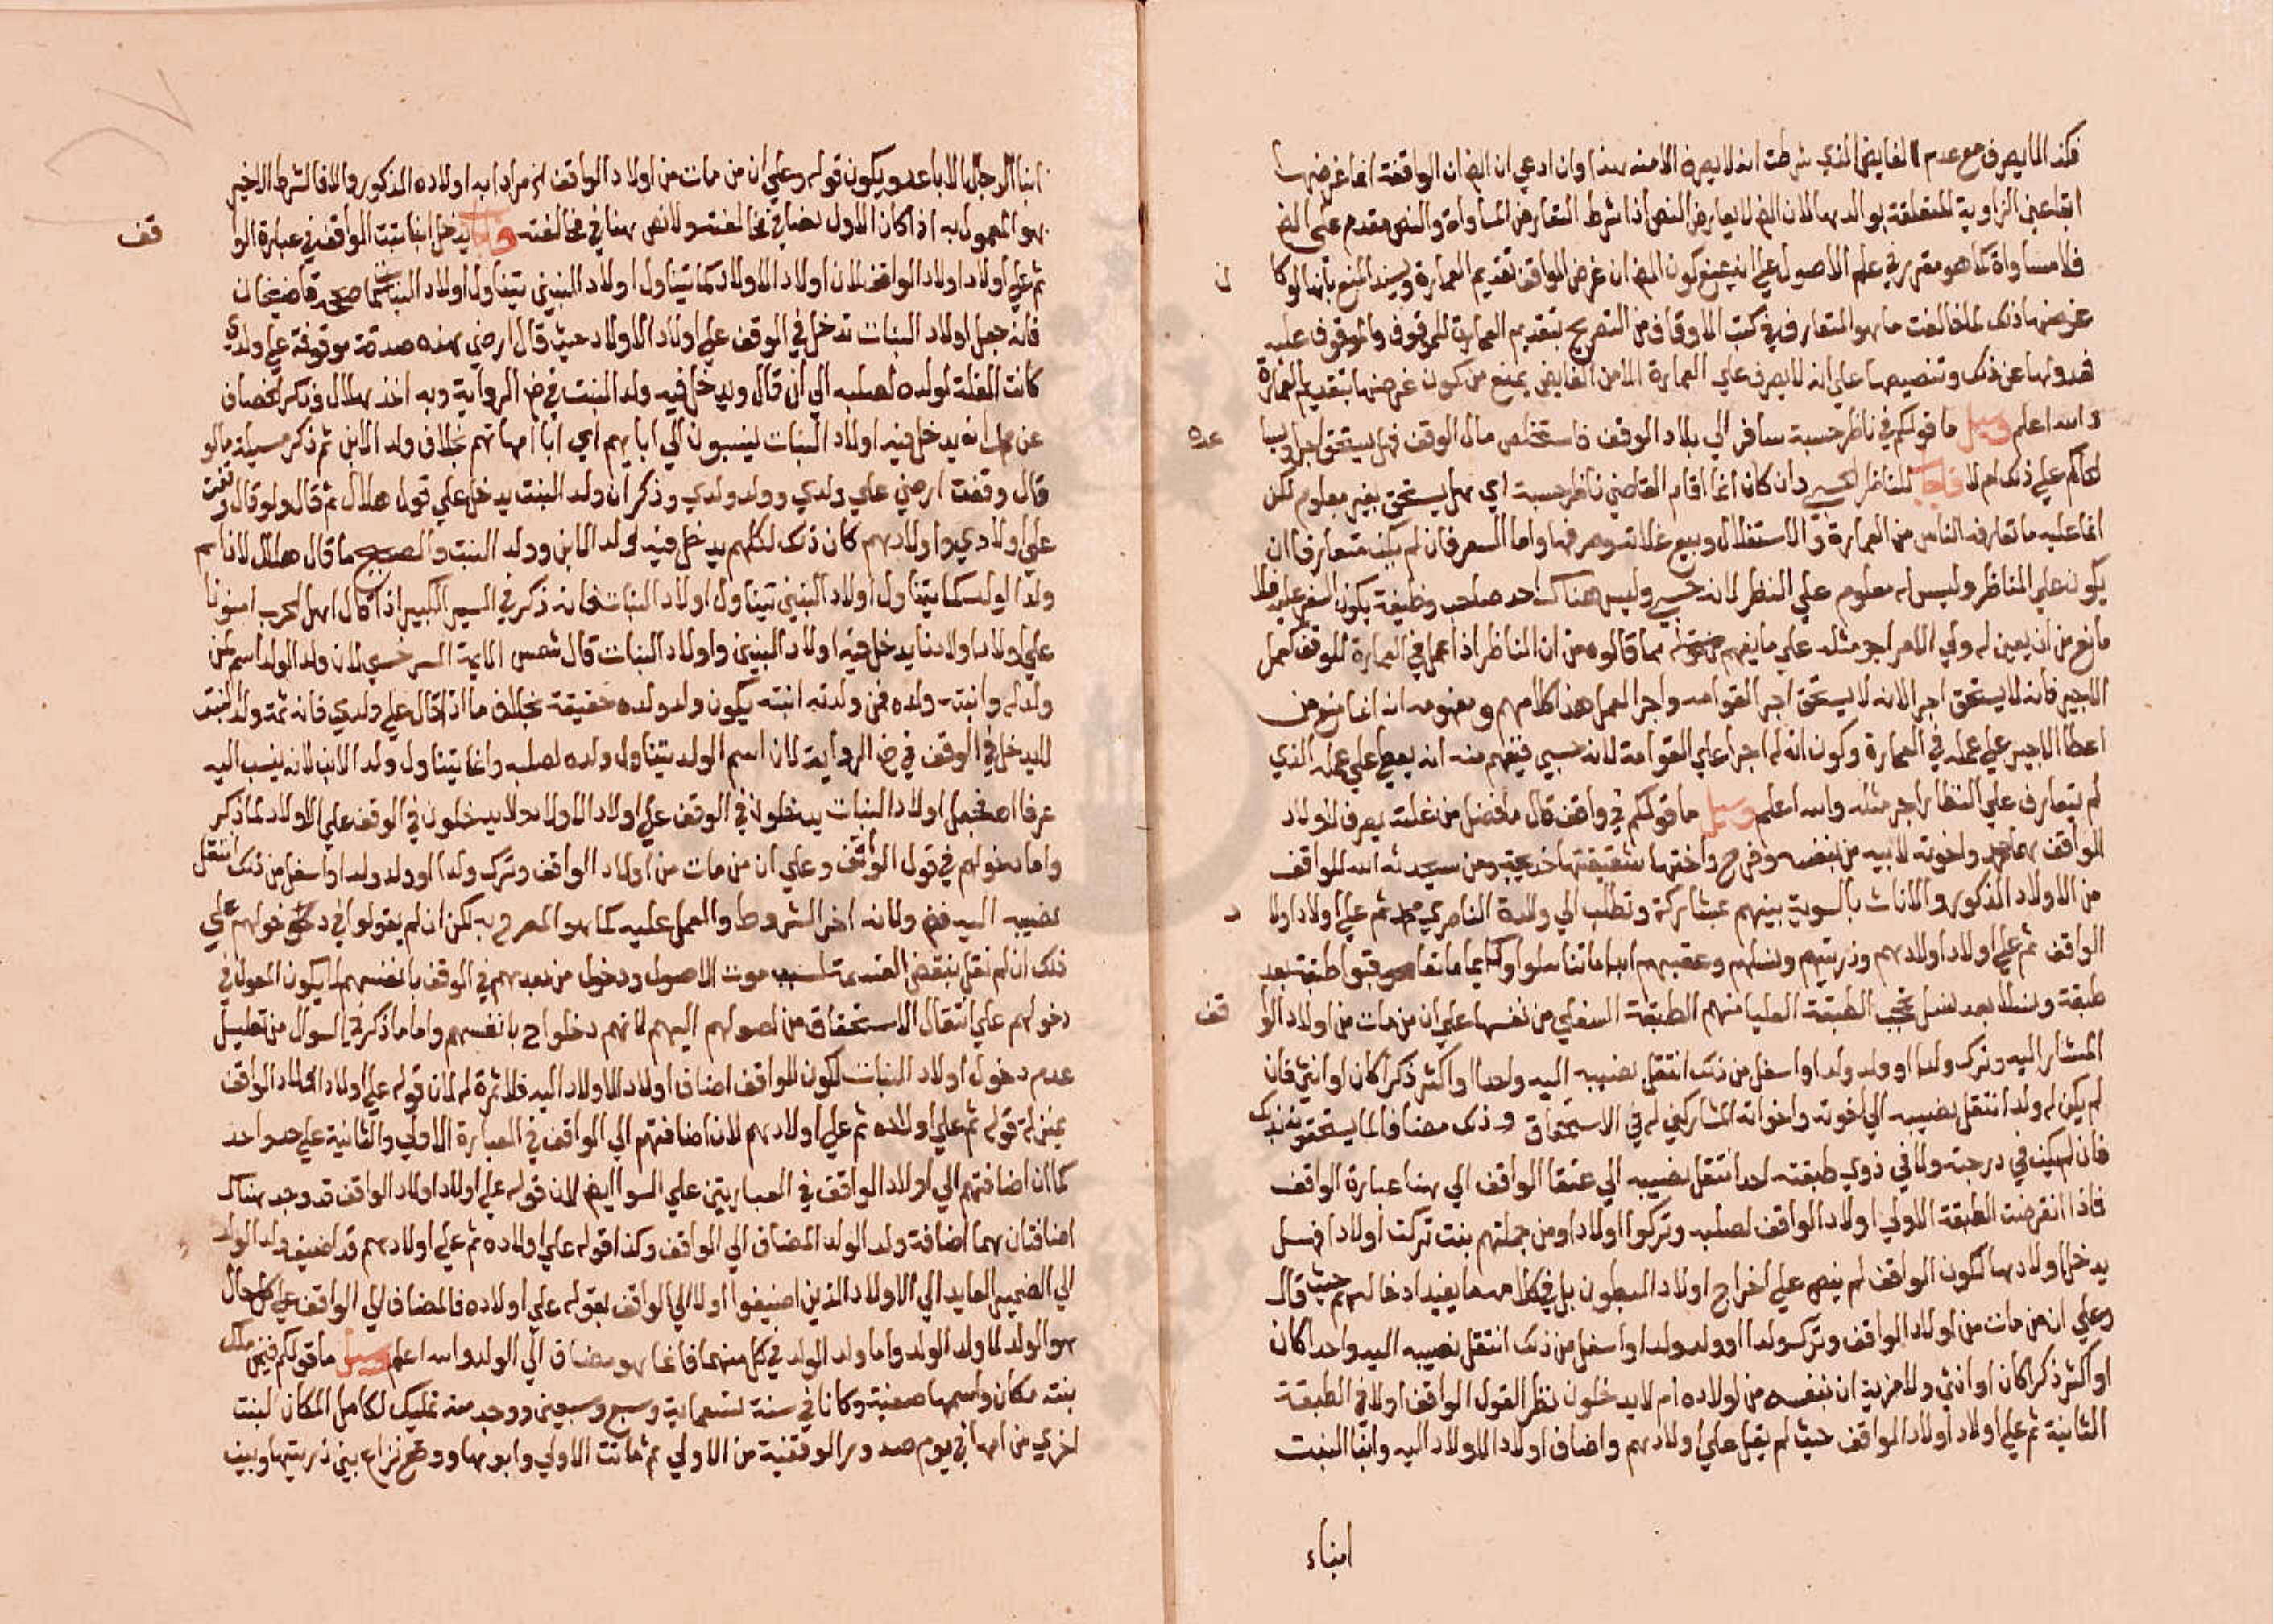 فكذا لا يصرف مع عدم الفايض الذي شرطت انه لا يصرف الا منه هذا وان ادعي ان الظ ان الواقفة انما غرضها
ابقا عين الزاوية المتعلقة بوالدها لان الظ لا يعارض النص اذ اشرط التعارض المساواة والنص مقدم على الظ
فلا مساواة كما هو مقرر في علم الاصول على انه يمنع كون الظ ان غرض الواقف تقديم العمارة ويسند المنع بانها لو كا
ن
غرضها ذلك لما خالفت ما هو المتعارف في كتب الاوقاف من التصريح بتقديم العمارة للموقوف والموقوف عليه
فعدولها عن ذلك وتنصيصها على انه لا يصرف علي العمارة الا من الفايض يمنع من كون غرضها تقديم العمارة
والله اعلم وسيل ما قولكم في ناظر حسبة سافر الي بلاد الوقف فاستخلص مال الوقف فهل يستحق اجرا ويبا
عده
لحاكم علي ذلك ام لا فاجاب للناظر الحسبي وان كان انما اقام القاضي ناظر حسبة اي هل يستحق بغير معلوم لكن
انما عليه ما تعارفه الناس من العمارة والاستغلال وبيع غلاته وصرفها واما السفر فان لم يكن متعارفا ان
يكون علي الناظر وليس له معلوم علي النظر لانه حسبي وليس هناك احد صاحب وظيفة يكون السفر عليه فلا
مانع من ان يعين له ولي الامر اجر مثله علي ما يفهم مما قالوه من ان الناظر اذا عمل في العمارة للوقف كعمل
الاجير فانه لا يستحق اجرا لانه لا يستحق اجر القوامه واجر العمل هذا كلامهم ومفهومه انه انما منع من
اعطا الاجير علي عمله في العمارة وكون انه له اجرا علي القوامة لانه حسبي فيفهم منه انه يعطي علي عمله الذي
لم يتعارف علي النظار اجر مثله والله اعلم وسيل ما قولكم في واقف قال ما فضل من غلته يصرف لاولاد
الواقف واخوته لابيه من بنفسه وفرج واختها شقيقتها خديجة ومن سيحدثه الله للواقف
من الاولاد الذكور والاناث بالسوية بينهم مشاركة وتطلب الي والدة الناصري محمد ثم علي اولاد اولا
د
الواقف ثم علي اولاد اولادهم وذريتهم ونسلهم وعقبهم ابدا ما تناسلوا ودايما ما تعاقبوا طبقة بعد
طبقة ونسلا بعد نسل تحجب الطبقة العليا منهم الطبقة السفلي من نفسها علي ان من مات من اولاد الوا
قف
المشار اليه وترك ولدا او ولد ولد او اسفل من ذلك انتقل نصيبه اليه واحدا او اكثر ذكرا كان او انثي فان
لم يكن له ولد انتقل نصيبه الي اخوته واخواته المشاركين له في الاستحقاق وذلك مضافا لما يستحقونه بذلك
فان لم يكن في درجته ولا في ذوي طبقته احد انتقل نصيبه الي عتقا الواقف الي هنا عبارة الواقف
فاذا انقرضت الطبقة الاولي اولاد الواقف لصلبه وتركوا اولادا ومن جملتهم بنت تركت اولادا فهل
يدخل اولادها لكون الواقف لم ينص علي اخراج اولاد البطون بل في كلامه ما يفيد ادخالهم حيث قال
وعلي ان من مات من اولاد الواقف وترك ولدا او ولد ولد او اسفل من ذلك انتقل نصيبه اليه واحدا كان
او اكثر ذكرا كان او انثي ولا مزية ان بنفسه من اولاده ام لا يدخلون نظر القول الواقف اولا في الطبقة
الثانية ثم علي اولاد اولاد الواقف حيث لم يقل علي اولادهم واضاف اولاد الاولاد اليه وابنا البنت
ابناء
ابنا الرجال الاباعد ويكون قوله وعلي ان من مات من اولاد الواقف له مرادا به اولاده الذكور والا فالشرط الاخير
هو المعمول به اذا كان الاول نصا في مخالفته ولا نص هنا في مخالفته فاجاب يدخل ابنا بنت الواقف في عبارة الوا
قف
ثم علي اولاد اولاد الواقف لان اولاد الاولاد كما يتناول اولاد البنين يتناول اولاد البنات كما صححه قاضيخان
فانه جعل اولاد البنات تدخل في الوقف علي اولاد الاولاد حيث قال ارضي هذه صدقة موقوفة علي ولدي
كانت الغلة لولده لصلبه الي ان قال ويدخل فيه ولد البنت في ظ الرواية وبه اخذ هلال وذكر الخصاف
عن محمد انه يدخل فيه اولاد البنات ينسبون الي ابايهم اي ابا امهاتهم بخلاف ولد الابن ثم ذكر مسيلة ما لو
قال وقفت ارضي علي ولدي وولد ولدي وذكر ان ولد البنت يدخل علي قول هلال ثم قال ولو قال وقفت
علي اولادي واولادهم كان ذلك لكلهم يدخل فيه ولد الابن وولد البنت والصحيح ما قال هلال لان اسم
ولد الولد كما يتناول اولاد البنين يتناول اولاد البنات فانه ذكر في السير الكبير اذا قال اهل الحرب امنونا
علي اولاد اولادنا يدخل فيه اولاد البنين واولاد البنات قال شمس الايمة السرخسي لان ولد الولد اسم لمن
ولد له وابنته ولده فمن ولدته ابنته يكون ولد ولده حقيقة بخلاف ما اذا قال علي ولدي فانه ثمة ولد البنت
لا يدخل في الوقف في ظ الرواية لان اسم الولد يتناول ولده لصلبه وانما يتناول ولد الابن لانه ينسب اليه
عرفا اهـ فجعل اولاد البنات يدخلون في الوقف علي اولاد الاولاد ولا يدخلون في الوقف علي الاولاد لما ذكر
واما دخولهم في قول الواقف وعلي ان من مات من اولاد الواقف وترك ولدا او ولد ولد او اسفل من ذلك انتقل
نصيبه اليه فظ ولانه اخر الشروط والعمل عليه كما هو المصرح به لكن ان لم يقولوا في دخولهم علي
ذلك ان لم نقل بنقض القسمة بسبب موت الاصول ودخول من بعدهم في الوقف بانفسهم لا يكون المعول في
دخولهم علي انتقال الاستحقاق من اصولهم اليهم لانهم دخلوا ح بانفسهم واما ما ذكر في السوال من تعليل
عدم دخول اولاد البنات لكون الواقف اضاف اولاد الاولاد اليه فلا ثمرة له لان قوله علي اولاد اولاد الواقف
بمنزلة قوله ثم علي اولاده ثم علي اولادهم لان اضافتهم الي الواقف في العبارة الاولي والثانية علي حد واحد
كما ان اضافتهم الي اولاد الواقف في العبارتين علي السوا ايضا لان قوله علي اولاد اولاد الواقف قد وجد هناك
اضافتان هما اضافة ولد الولد المضاف الي الواقف وكذا قوله علي اولاده ثم علي اولادهم قد اضيف ولد الولد
الي الضمير العايد الي الاولاد الذين اضيفوا اولا الي الواقف بقوله علي اولاده فالمضاف الي الواقف علي كل حال
هو الولد لا ولد الولد واما ولد الولد في كل منهما فانما هو مضاف الي الولد والله اعلم وسيل ما قولكم فيمن ملك
بنته مكان واسمها صفية وكانا في سنة تسعماية وسبع وسبعين ووجد منه تمليك لكامل المكان لبنت
اخري من امها في يوم صدور الوقفية من الاولي ثم ماتت الاولي وابوها ووقع نزاع بين ذريتها وبين